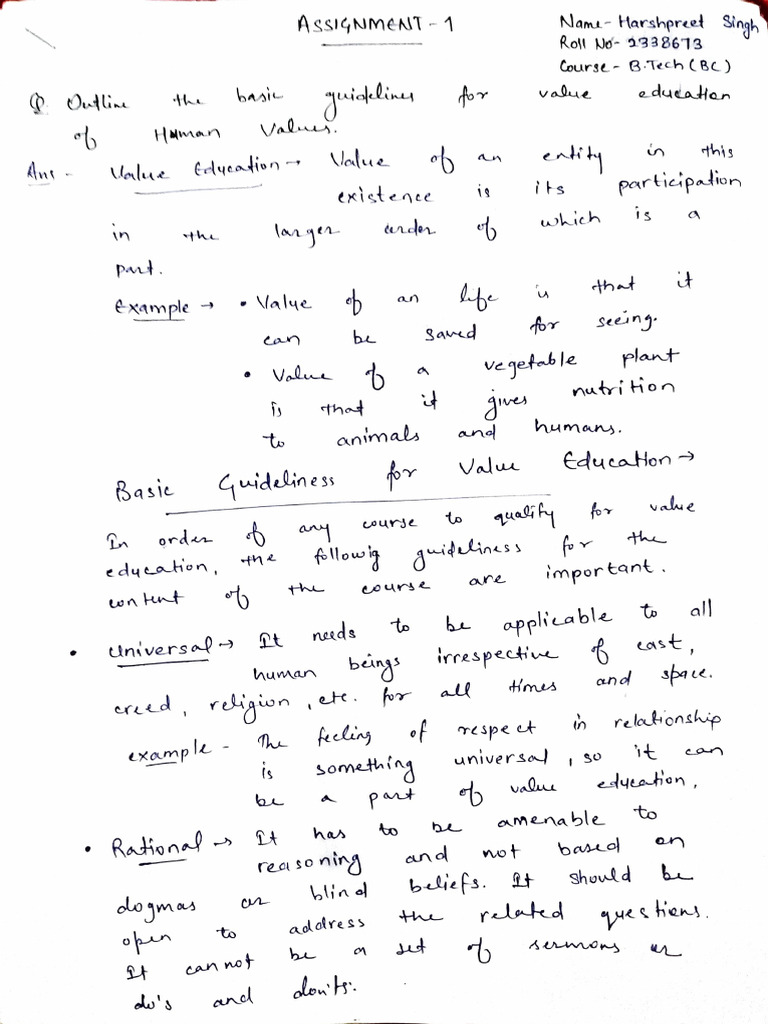 ASSIGNMENT - 1
Name- Harshpreet Singh
Roll No- 2338673
Course - B.Tech (BC)
Q Outline the basic guidelines for value education
of Human Values.
Ans - Value Education → Value of an entity in this
existence is its participation
in the larger order of which is a
part.
Example → • Value of an life is that it
can be saved for seeing.
• Value of a vegetable plant
is that it gives nutrition
to animals and humans.
Basic Guideliness for Value Education →
In order of any course to qualify for value
education, the followig guideliness for the
content of the course are important.
• Universal → It needs to be applicable to all
human beings irrespective of cast,
creed, religion, etc. for all times and space.
example - The feeling of respect in relationship
is something universal, so it can
be a part of value education,
• Rational → It has to be amenable to
reasoning and not based on
dogmas or blind beliefs. It should be
open to address the related questions.
It cannot be a set of sermons or
do's and don'ts.